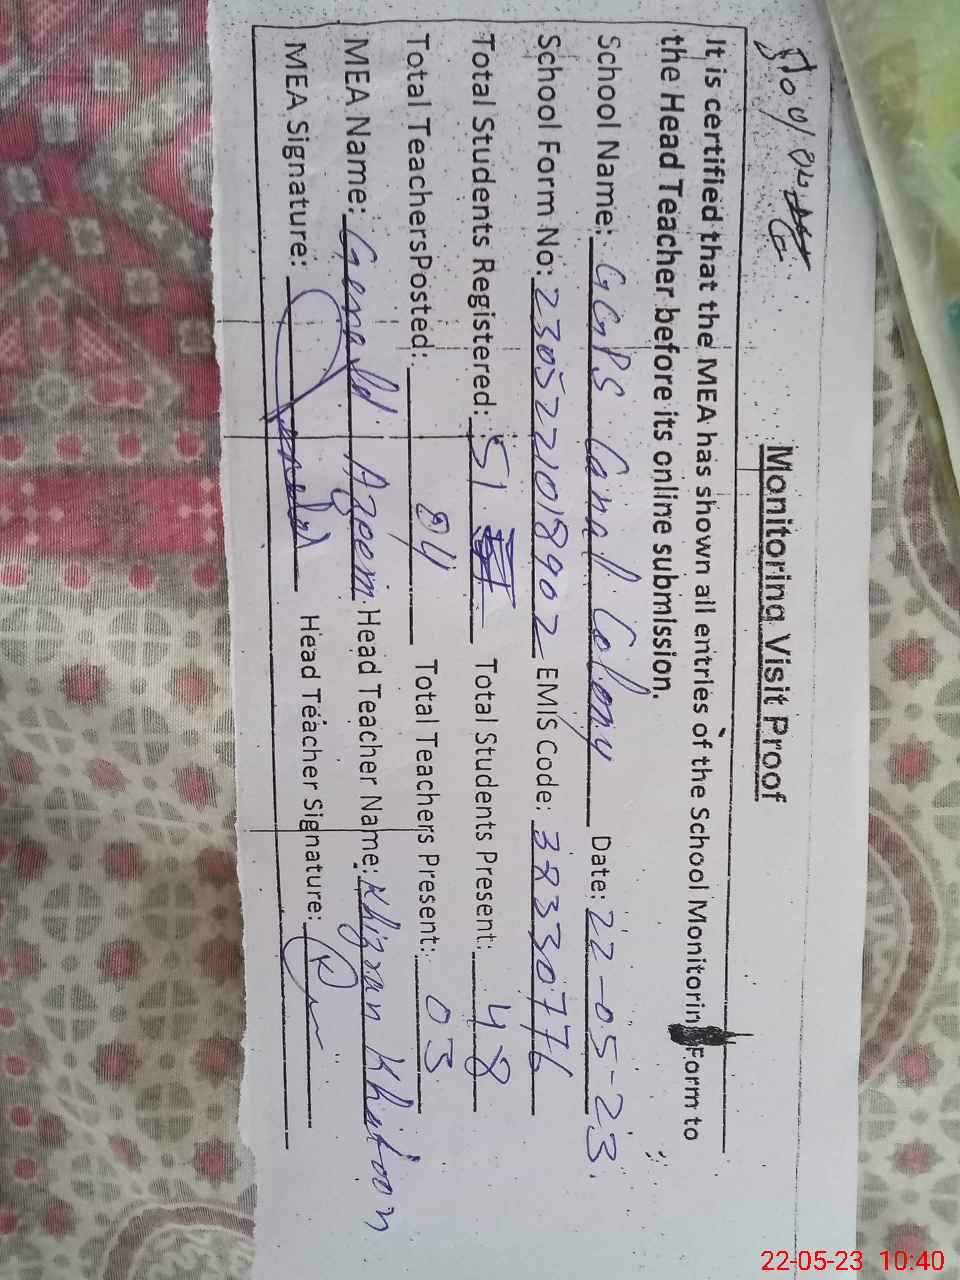 Monitoring Visit Proof
It is certified that the MEA has shown all entries of the School Monitorin Form to
the Head Teacher before its online submission.
School Name: GGPS Canal Colony Date: 22-05-23.
School Form No: 2305221018902 EMIS Code: 38330776
Total Students Registered: 51 Total Students Present: 48
Total TeachersPosted: 04 Total Teachers Present: 03
MEA Name: Azeem Head Teacher Name: Khizran Khatoon
MEA Signature: Head Teacher Signature:
22-05-23 10:40